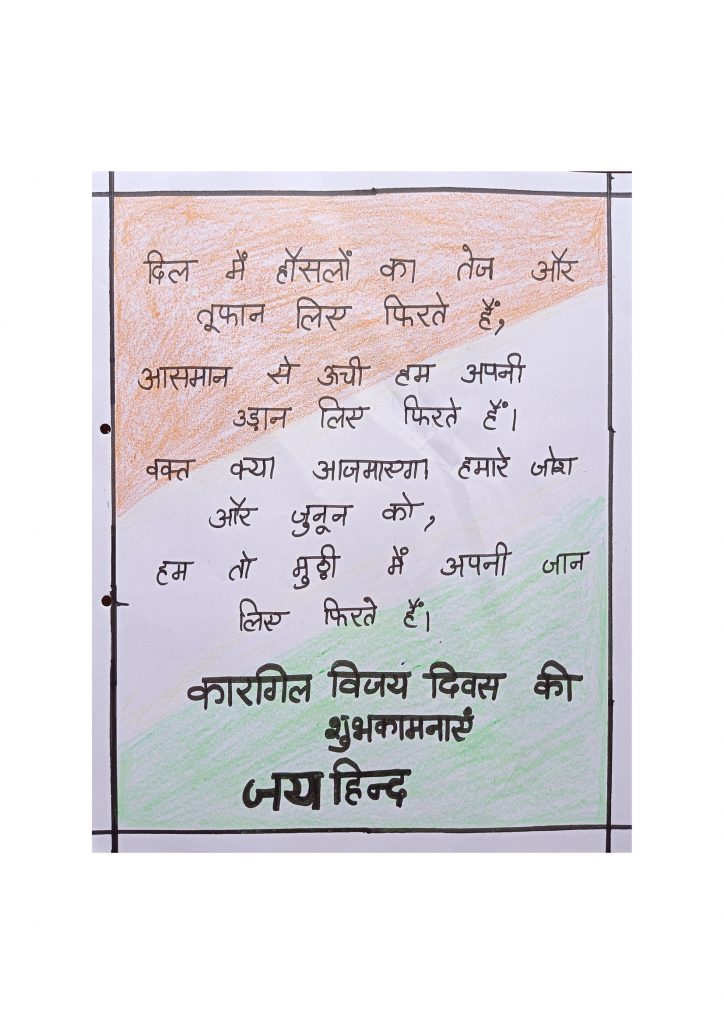 दिल में हौसलों का तेज और
तूफान लिए फिरते हैं,
आसमान से ऊची हम अपनी
उड़ान लिए फिरते हैं।
वक्त क्या आजमाएगा हमारे जोश
और जुनून को,
हम तो मुठ्ठी में अपनी जान
लिए फिरते हैं।
कारगिल विजय दिवस की
शुभकामनाएं
जय हिन्द